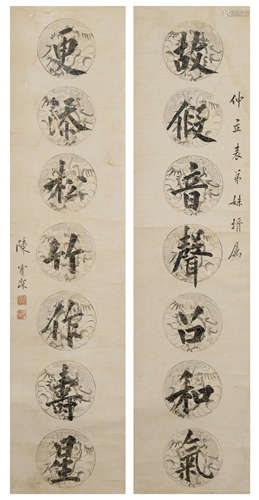 仲立表弟妹壻属
故假音聲召和氣
更添松竹作壽星
陳寶琛